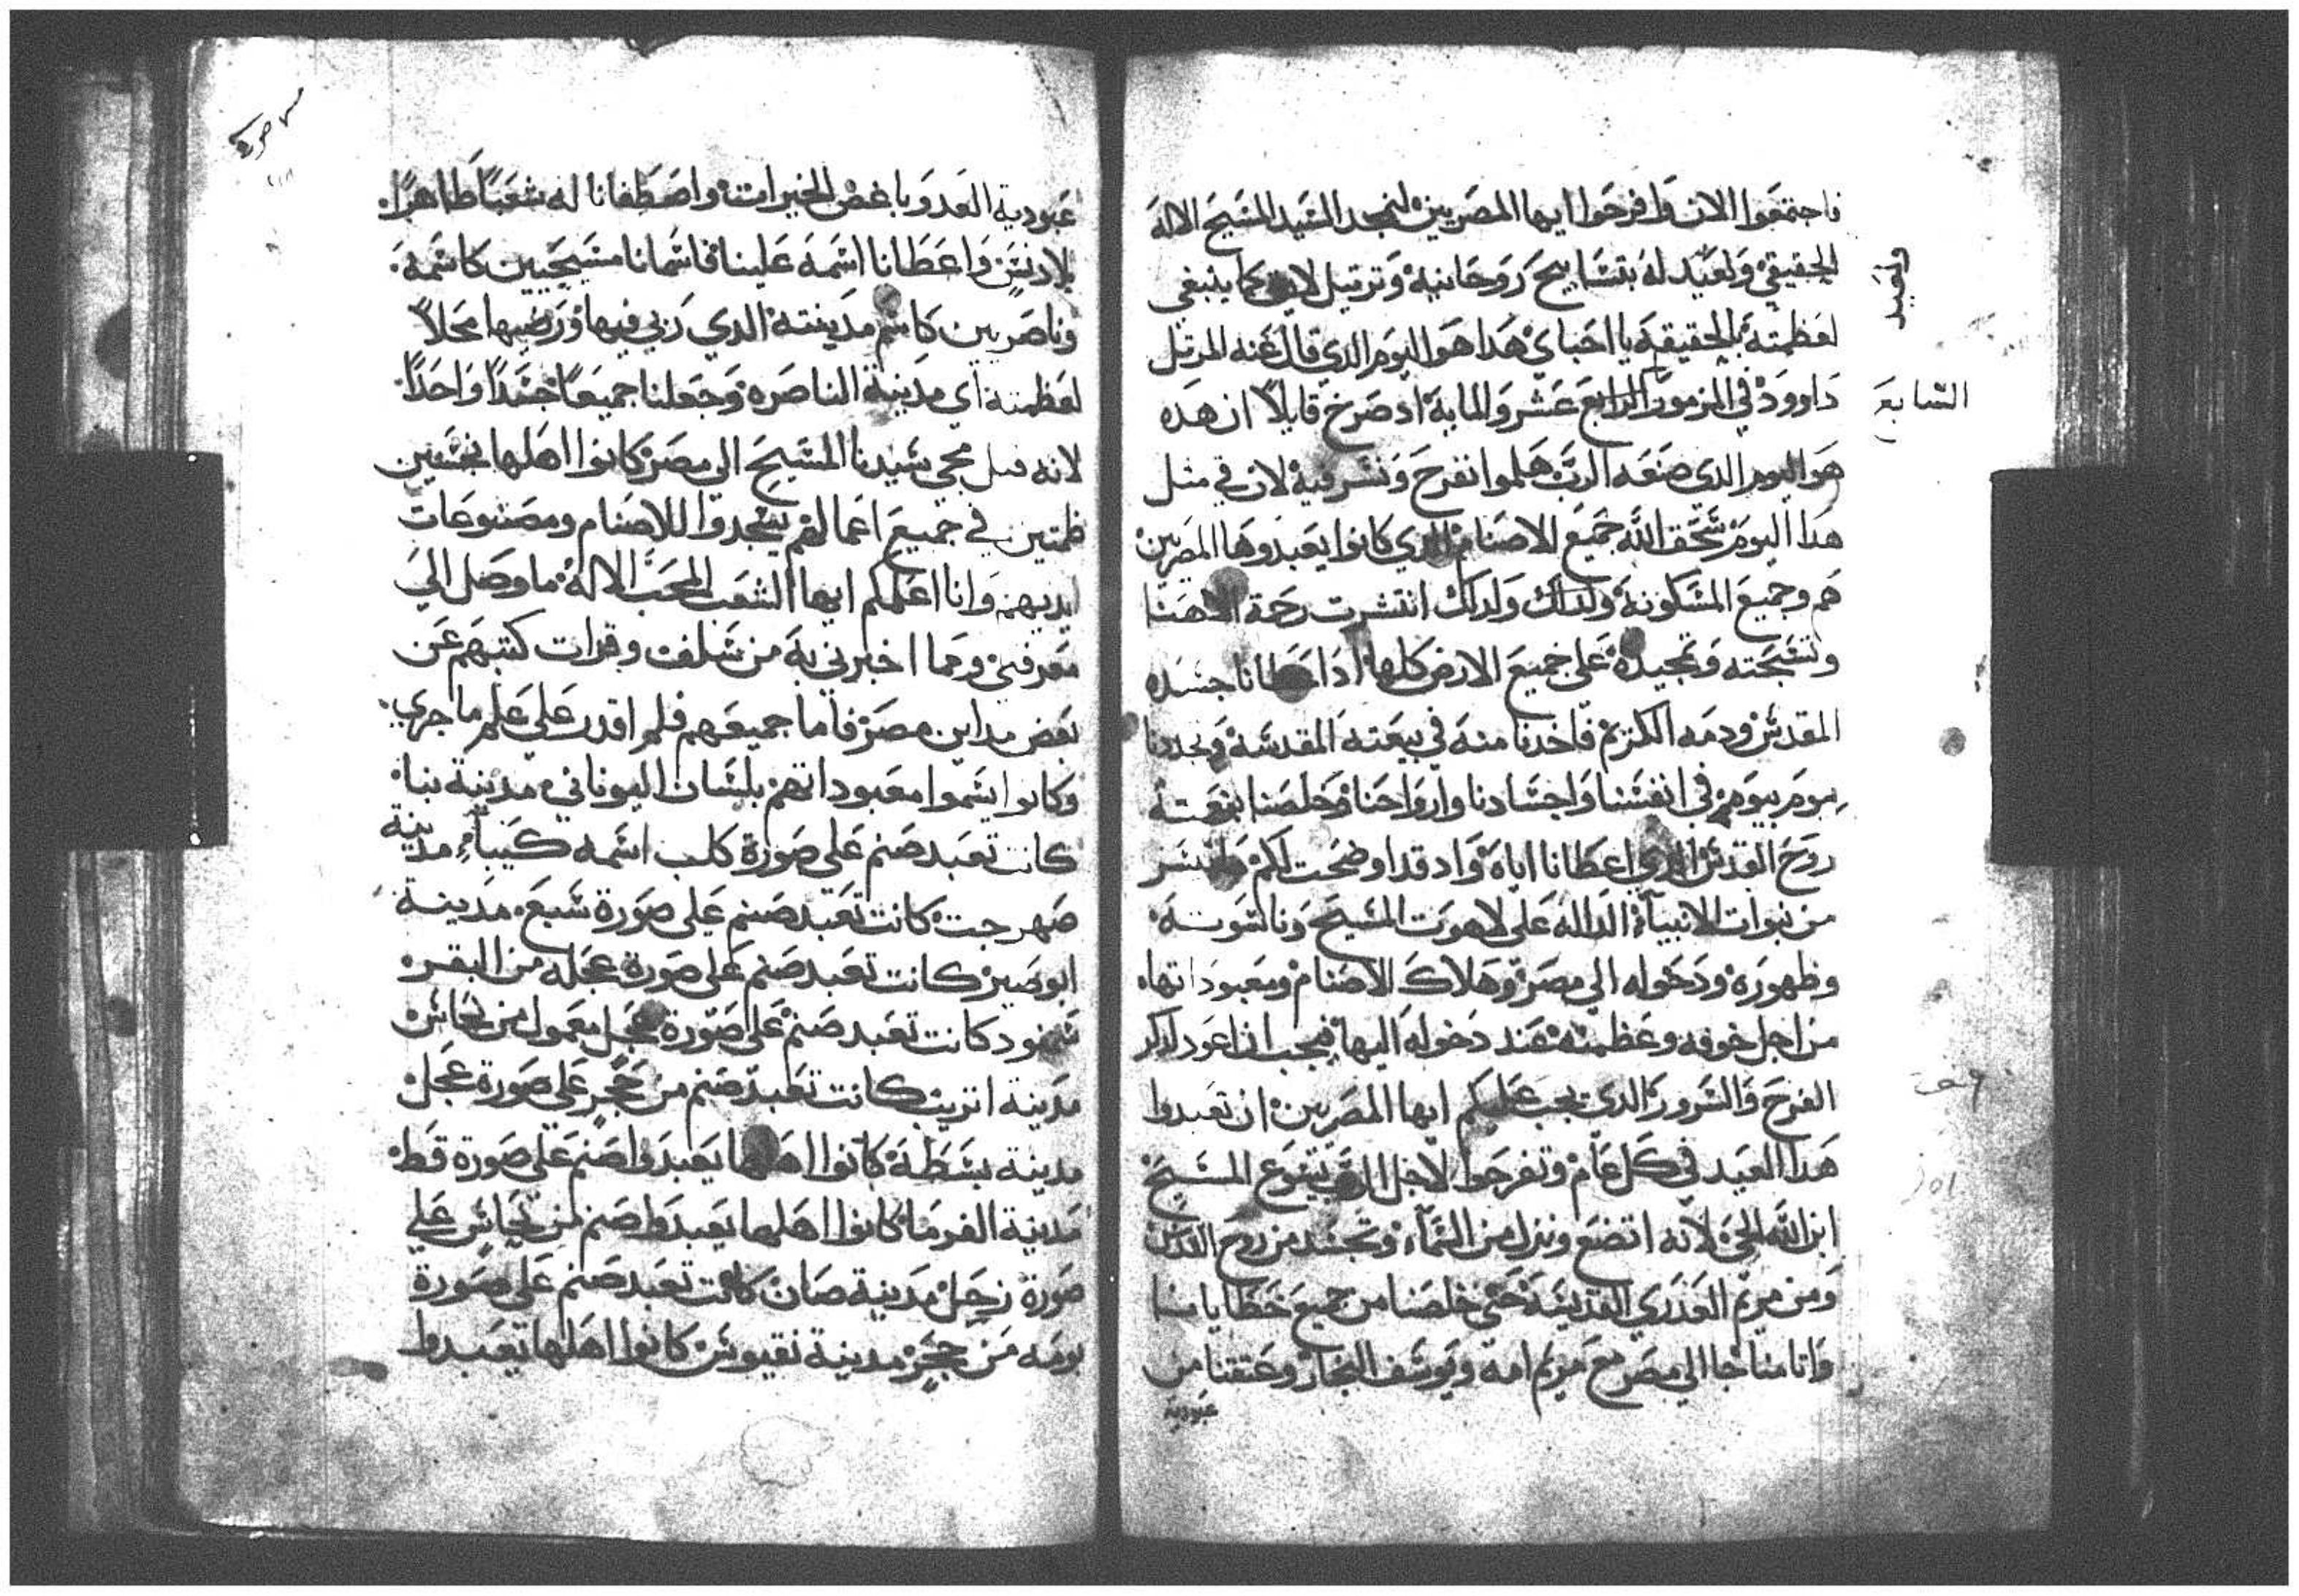 فاجتمعوا الان وافرحوا ايها المصريين لنمجد السيد المسيح الاله
الحقيقي ولعيد له بتسابيح روحانيه وترتيل كما ينبغي
ولعيد
لعظمته بالحقيقه يا احباي هدا هو اليوم الدي قال عنه المرتل
داوود في المزمور الرابع عشر والمايه اد صرخ قايلاً ان هده
السابع
هو اليوم الدي صنعه الرب هلموا نفرح ونسر فيه لان في مثل
هدا اليوم سحق الله جميع الاصنام الدي كانوا يعبدوها المصريين
هم وجميع المسكونه ولدلك ولدلك انتشرت رحمة الاهنا
وتسبحته وتمجيده على جميع الارض كلها اد اعطانا جسده
المقدس ودمه الكريم فاخدنا منه في بيعته المقدسه وتجددنا
يوم بيوم في انفسنا واجسادنا وارواحنا وخلصنا بنعمته
روح القدس الدي اعطانا اياه واد قد اوضحت لكم
من نبوات الانبياء الداله على لاهوت المسيح وناسوته
وظهوره ودخوله الي مصر وهلاك الاصنام ومعبوداتها
من اجل خوفه وعظمته عند دخوله اليها فيجب ان اعود لدكر
الفرح والسرور الدي يجب عليكم ايها المصريين ان تعيدوا
هدا العيد في كل عام وتفرحوا لاجل الرب يسوع المسيح
ابن الله الحي لانه اتضع ونزل من السماء وتجسد من روح القدس
ومن مريم العدري القديسه حتى خلصنا من جميع خطايانا
واتا منا جا الي مصر مع مريم امه ويوسف النجار وعتقنا من
عبودية
عبودية العدو باغض الخيرات واصطفانا له شعباً طاهراً
بلا دنس واعطانا اسمه علينا فاسمانا مسيحيين كاسمه
وناصريين كاسم مدينته الدي ربي فيها ورضيها محلاً
لعظمته اي مدينة الناصره وجعلنا جميعاً جسداً واحداً
لانه قبل مجي سيدنا المسيح الي مصر كانوا اهلها نجسين
طمتين في جميع اعمالهم يسجدوا للاصنام ومصنوعات
ايديهم وانا اعلمكم ايها الشعب المحب الاله ما وصل الي
معرفتي ومما اخبرني به من سلف وقرات كتبهم عن
بعض مداين مصر فاما جميعهم فلم اقدر على علم ما جري
وكانوا يسموا معبوداتهم بلسان اليوناني مدينة بنا
كانت تعبد صنم على صورة كلب اسمه كيبا مدينة
صهرجت كانت تعبد صنم على صورة سبع مدينة
ابوصير كانت تعبد صنم على صورة عجله من البقر
سمنود كانت تعبد صنم على صورة عجل معمول من نحاس
مدينة اتريب كانت تعبد صنم من حجر على صورة عجل
مدينة بسطه كانوا اهلها يعبدوا صنم على صورة قط
مدينة الفرما كانوا اهلها يعبدوا صنم من نحاس علي
صورة زحل مدينة صان كانت تعبد صنم على صورة
بومه من حجر مدينة نقيوس كانوا اهلها يعبدوا